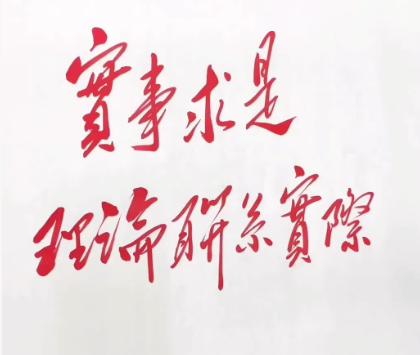 實事求是
理論聯系實際